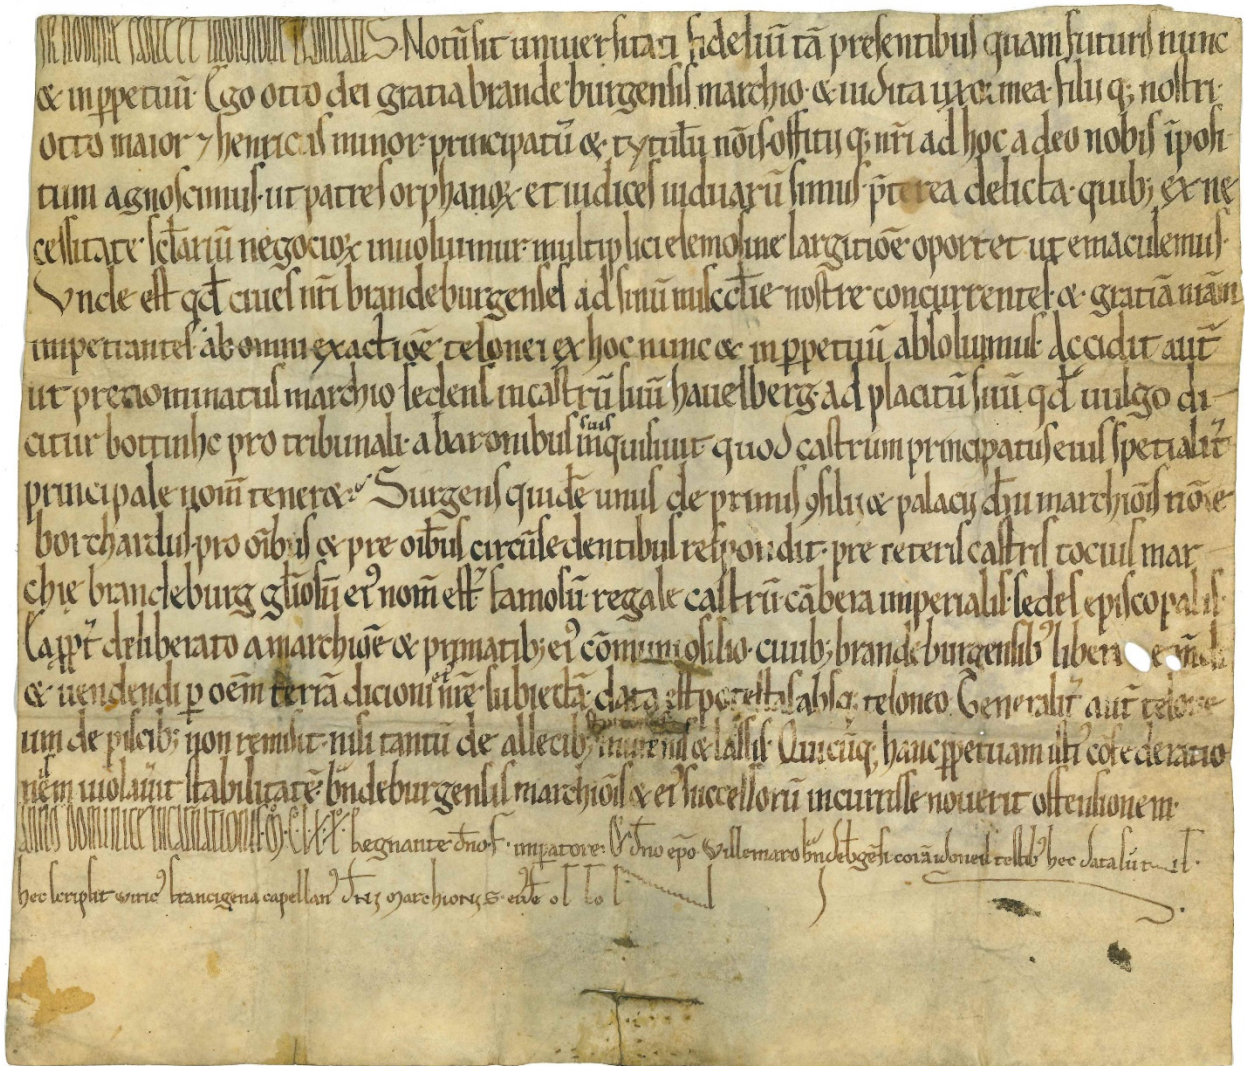 IN NOMINE SANCTE ET INDIVIDUE TRINITATIS. Notū sit uniuersitati fideliū tā presentibus quam futuris nunc
& in ꝑpetuū. Ego otto dei gratia brandeburgensis marchio. & iudita uxor mea. filii q; nostri.
otto maior ⁊ henricus minor. principatū & tytulū nōis. offitii q; nr̄i ad hoc a deo nobis īposi
tum agnoscimus. ut patres orphanoꝝ et iudices uiduarū simus. p̄terea delicta. quib; ex ne
cessitate sclariū negocioꝝ inuoluimur. multiplici elemosine largitiōe oportet ut emaculemus.
Vnde est qđ ciues nr̄i brandeburgenses ad sinū mis cđie nostre concurrentes. & gratiā nr̄am
impetrantes. ab omni exactiōe telonei ex hoc nunc & in ꝑpetuū absoluimus. Accidit aut̄
ut prenominatus marchio sedens in castrū suū hauelberg. ad placitū suū qđ uulgo di
citur bottinhc pro tribunali. a baronibus suis inquisiuit quod castrum principatus eius spetialit̄
principale nom̄ teneret. Surgens quidē unus de primis ꝯsilii & palacii dn̄i marchiōis nōie
borchardus. pro oībus & pre oībus circūsedentibus respondit. pre ceteris castris tocius mar
chię brandeburg gl̄iosū ei' nom̄ est. famosū regale castrū. cābera imperialis. sedes episcopalis.
deliberato a marchiōe & primatib; ei' cōmuni ꝯsilio. ciuib; brandeburgensib'
& uendendi ꝑ oēm terrā dicioni nr̄ę subiectā data est potestas absq; teloneo. Generalit̄ aut̄ telone
um de piscib; non remisit. nisi tantū de allecib; & lassis. Quicūq; hanc ꝑpetuam cōfederatio
nem uiolauit stabilitatē. brandeburgensis marchiōis & ei' successorū incurrisse nouerit offensionem.
ANNO DOMINICE INCARNATIONIS. M. C. L. X. X. Regnante dn̄o. F. imperatore. & dn̄o ep̄o Willemaro corā idoneis testib' hec data sūt
hec scripsit francigena capellan' marchionis